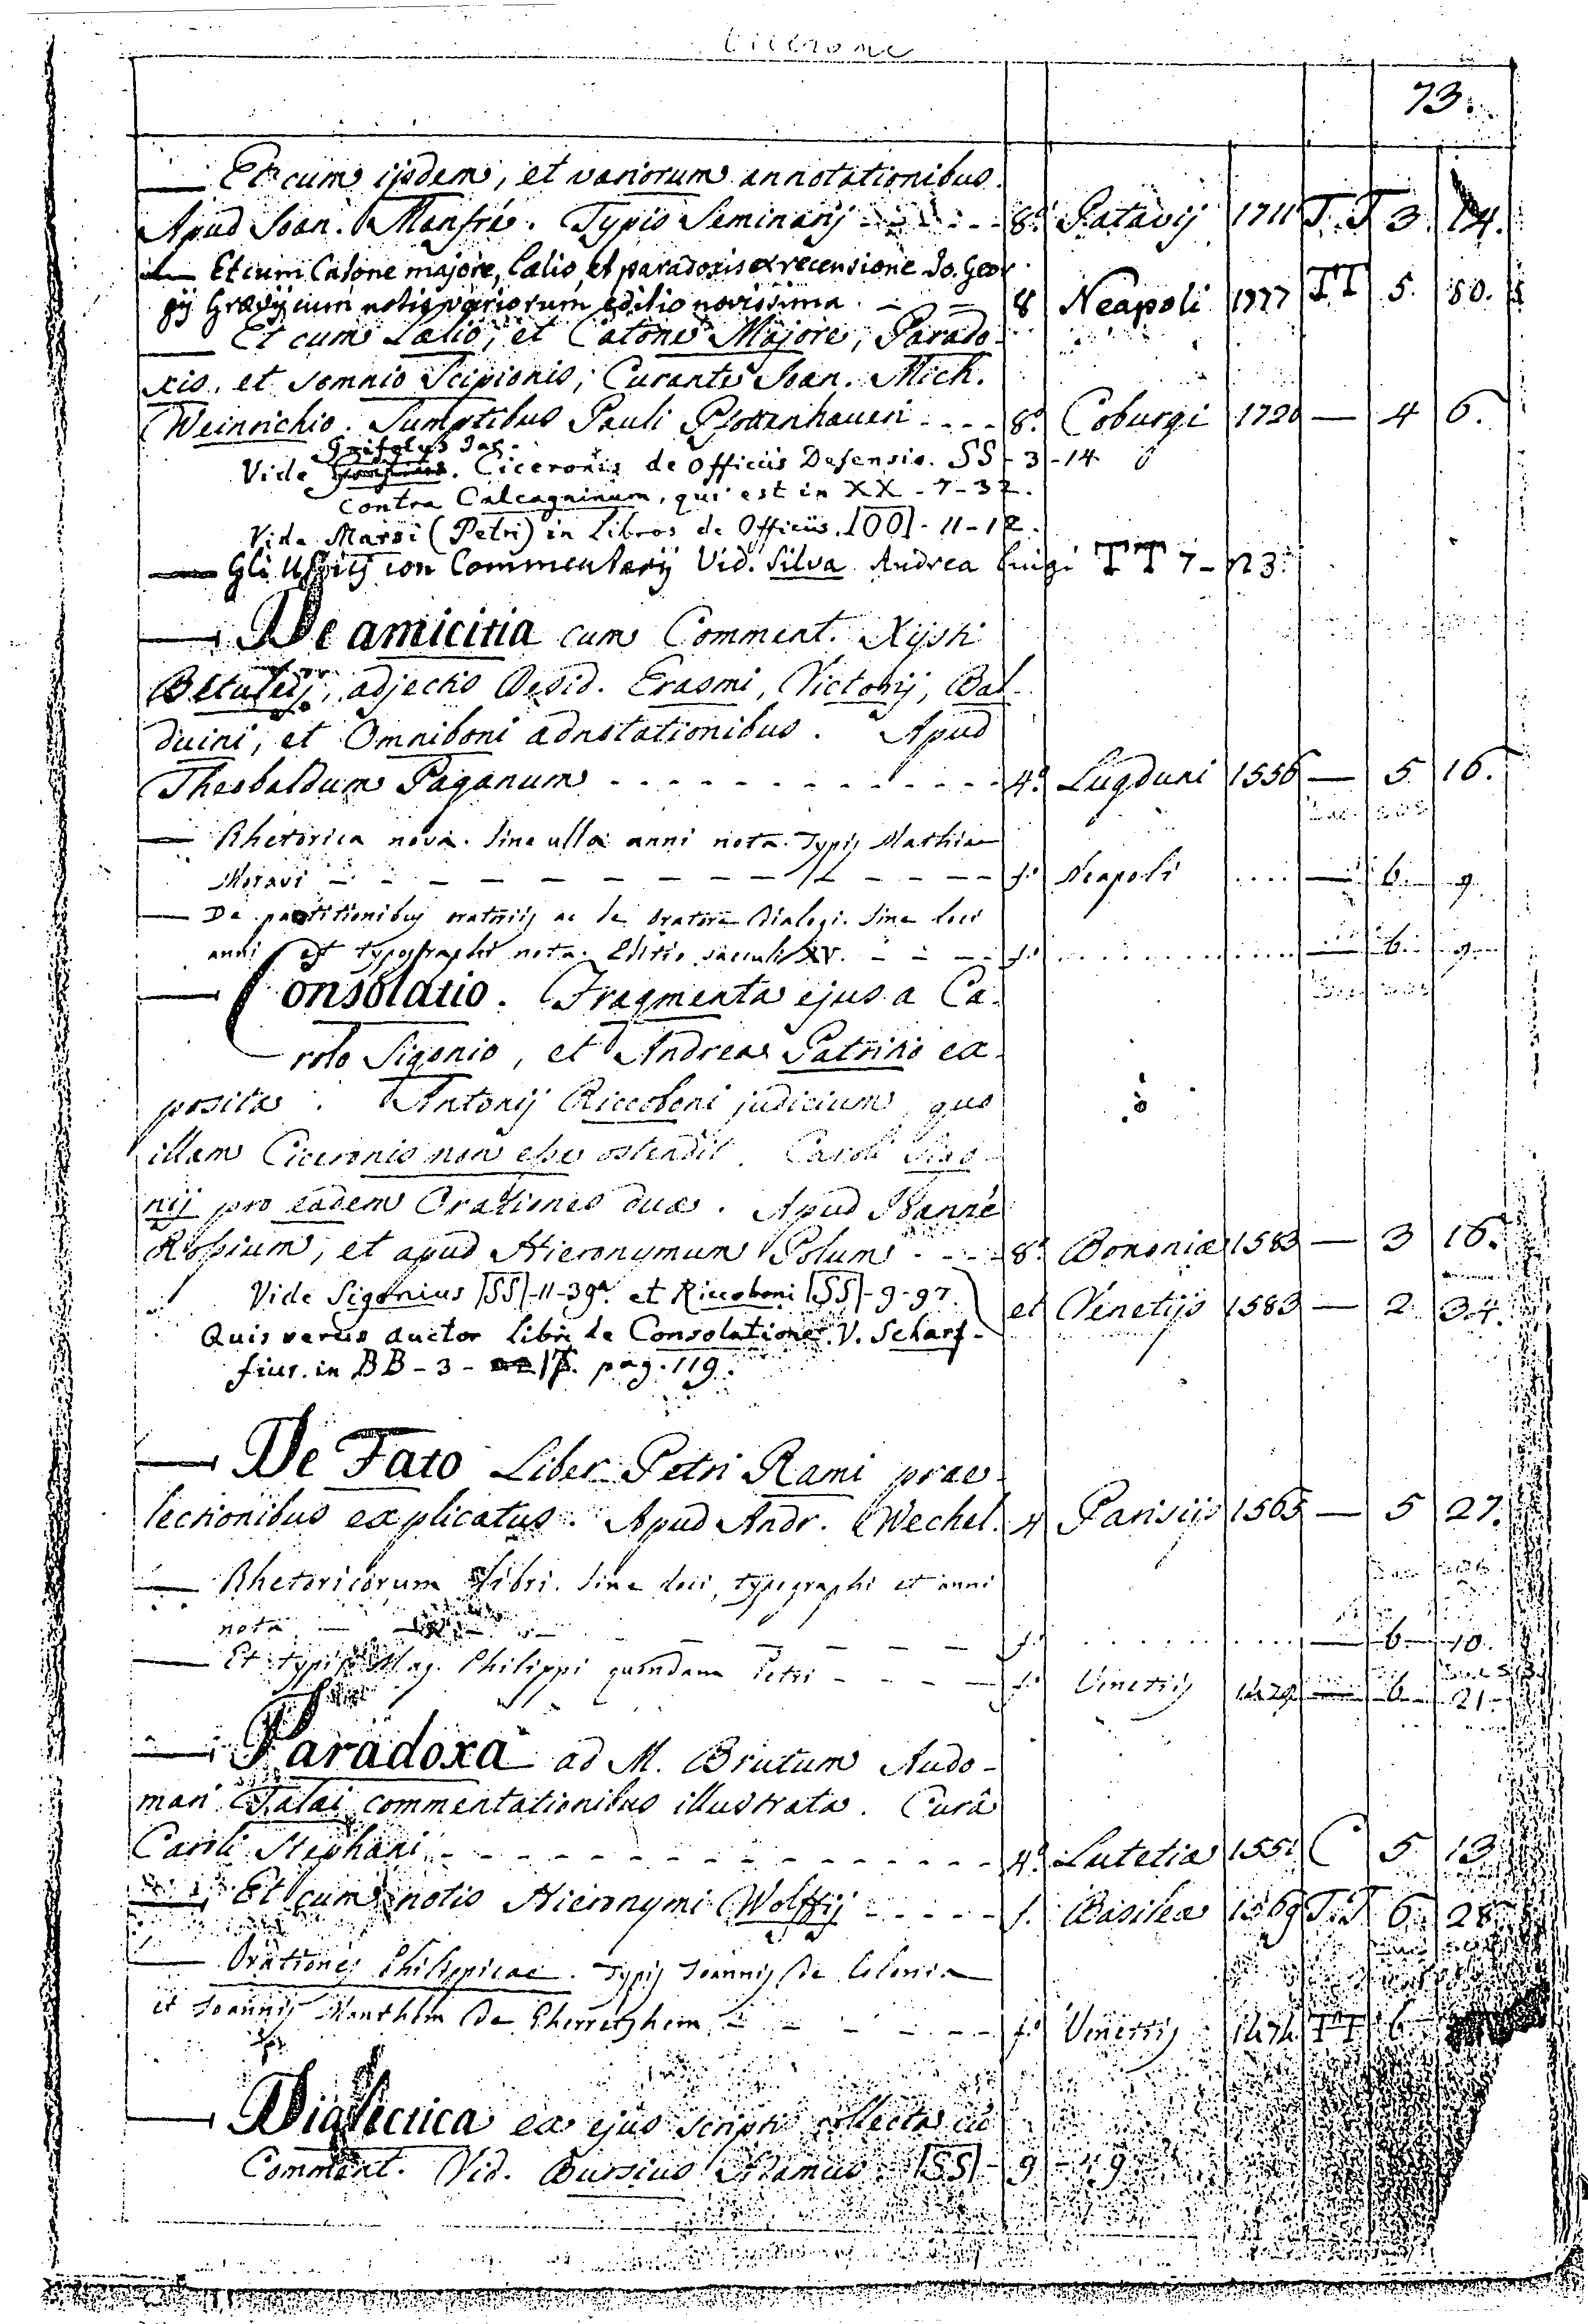 Cicerone
73.
— Et cum ijsdem, et variorum annotationibus.
Apud Joan. Manfré. Typis Seminarij - - - - - 8.º Patavij 1711 T.T 3 14.
— Et cum Catone majore, Lælio, et paradoxis ex recensione Jo. Geor
gij Grævij cum notis variorum editio novissima. - - 8 Neapoli 1777 TT 5. 80.
— Et cum Lælio, et Catone Majore, Parado-
xis, et somnio Scipionis; Curante Joan. Mich.
Weinrichio. Sumptibus Pauli Pfotenhaueri - - - - 8.º Coburgi 1720 — 4 6.
Grifolus Jac.
Vide . Ciceronis de Officiis Defensio. SS - 3 - 14
contra Calcagninum, qui est in XX - 7 - 32.
Vide Marsi (Petri) in Libros de Officiis. |OO| - 11 - 12.
— Gli Ufficij con Commentarij Vid. Silva Andrea Luigi TT 7 - n 3.
— De amicitia cum Comment. Xysti
Betuleij, adjectis Desid. Erasmi, Victorij, Bal-
duini, et Omniboni adnotationibus. Apud
Theobaldum Paganum - - - - - - - - - - - - 4.º Lugduni 1556 — 5 16.
— Rhetorica nova. Sine ulla anni nota. Typis Mathiæ
Moravi - - - - - - - - - - - - f.º Neapoli .... — 6 9
— De partitionibus oratoriis ac de Oratore Dialogi. Sine loci
anni et typographi nota. Editio sæculi XV. - - - - f.º ........ .... — 6 9
— Consolatio. Fragmenta ejus a Ca-
rolo Sigonio, et Andrea Patritio ex-
posita. Antonij Riccoboni judicium, quo
illam Ciceronis non esse ostendit. Caroli Sigo-
nij pro eadem Orationes duæ. Apud Joanné
Rossium, et apud Hieronymum Polum - - - 8.º Bononiæ 1583 — 3 16.
Vide Sigonius |SS| - 11 - 39ª. et Riccoboni |SS| - 9 - 97. et Venetijs 1583 — 2 34.
Quis verus auctor libri de Consolatione. V. Scharf-
fius. in BB - 3 - 17. pag. 119.
— De Fato Liber Petri Rami præ-
lectionibus explicatus. Apud Andr. Wechel. 4 Parisiis 1565 — 5 27.
— Rhetoricorum libri. Sine loci, typographi et anni
nota - - - - - - - - - f.º ........ .... — 6 10.
— Et typis Mag. Philippi quondam Petri - - - - f.º Venetiis 1479 — 6 21
— Paradoxa ad M. Brutum Audo-
mari Talæi commentationibus illustrata. Curâ
Caroli Stephani - - - - - - - - - - - - - - 4.º Lutetiæ 1551 C 5 13
— Et cum notis Hieronymi Wolffij - - - - - f. Basileæ 1569 T.T 6 28.
— Orationes Philippicae. Typis Joannis De Colonia
et Joannis Manthem De Gherretzhem - - - - - f.º Venetiis 1474 TT 6
— Dialectica ex ejus scriptis collecta cũ
Comment. Vid. Bursius Adamus. |SS| - 9 - 49